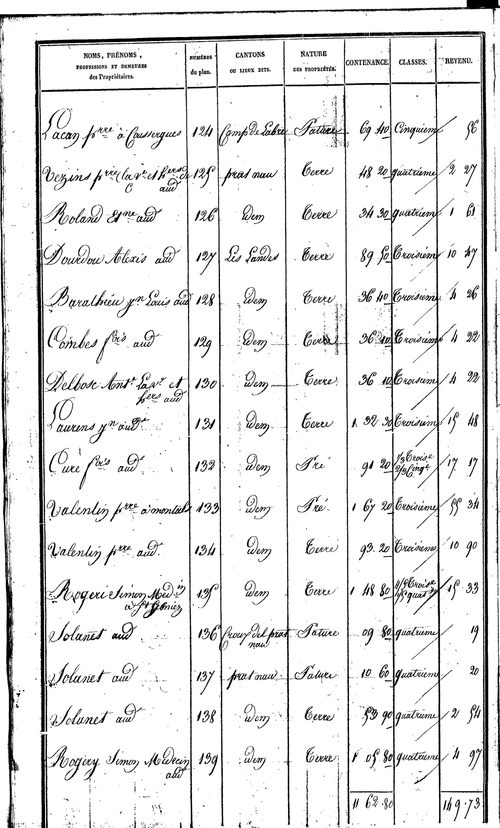 NOMS, PRÉNOMS, PROFESSIONS ET DEMEURES des Propriétaires. NUMÉROS du plan. CANTONS OU LIEUX DITS. NATURE DES PROPRIÉTÉS. CONTENANCE. CLASSES. REVENU.
Lacan prre à Coussergues 124 Camp de Labre Pature 69 40 Cinquiem 56
Vezins prre (la ve et hers de 125 prat nau Terre 48 20 quatrieme 2 27
C aud
Roland Etne aud 126 idem Terre 34 30 quatriem 1 61
Dourdou Alexis aud 127 Les Landes Terre 89 50 Troisiém 10 47
Barathieu jn Louis aud 128 idem Terre 36 40 Troisieme 4 26
Combes fois aud 129 idem Terre 36 10 Troisieme 4 22
Delbosc Ant. La ve et 130 idem Terre 36 10 Troisieme 4 22
hers aud
Laurens jn aud. 131 idem Terre 1. 32 30 Troisieme 15 48
Curé fois aud 132 idem Pré 91 20 1/3 Crois.e 2/3 Cinq.e 17 17
Valentin prre à montels 133 idem Pré 1 67 20 Troisième 55 34
Valentin prre aud. 134 idem Terre 93. 20 Troisieme 10 90
Rogeri Simon Medin 135 idem Terre 1 48 80 15 33
à St Geniez
Solanet aud 136 Croux del prat Pature 09 80 quatrieme 19
nau
Solanet aud 137 prat nau Pature 10 60 quatrieme 20
Solanet aud 138 idem Terre 53 90 quatrieme 2 54
Rogéry Simon Medecin 139 idem Terre 1 05 80 quatrieme 4 97
aud
11 62.80 149.73